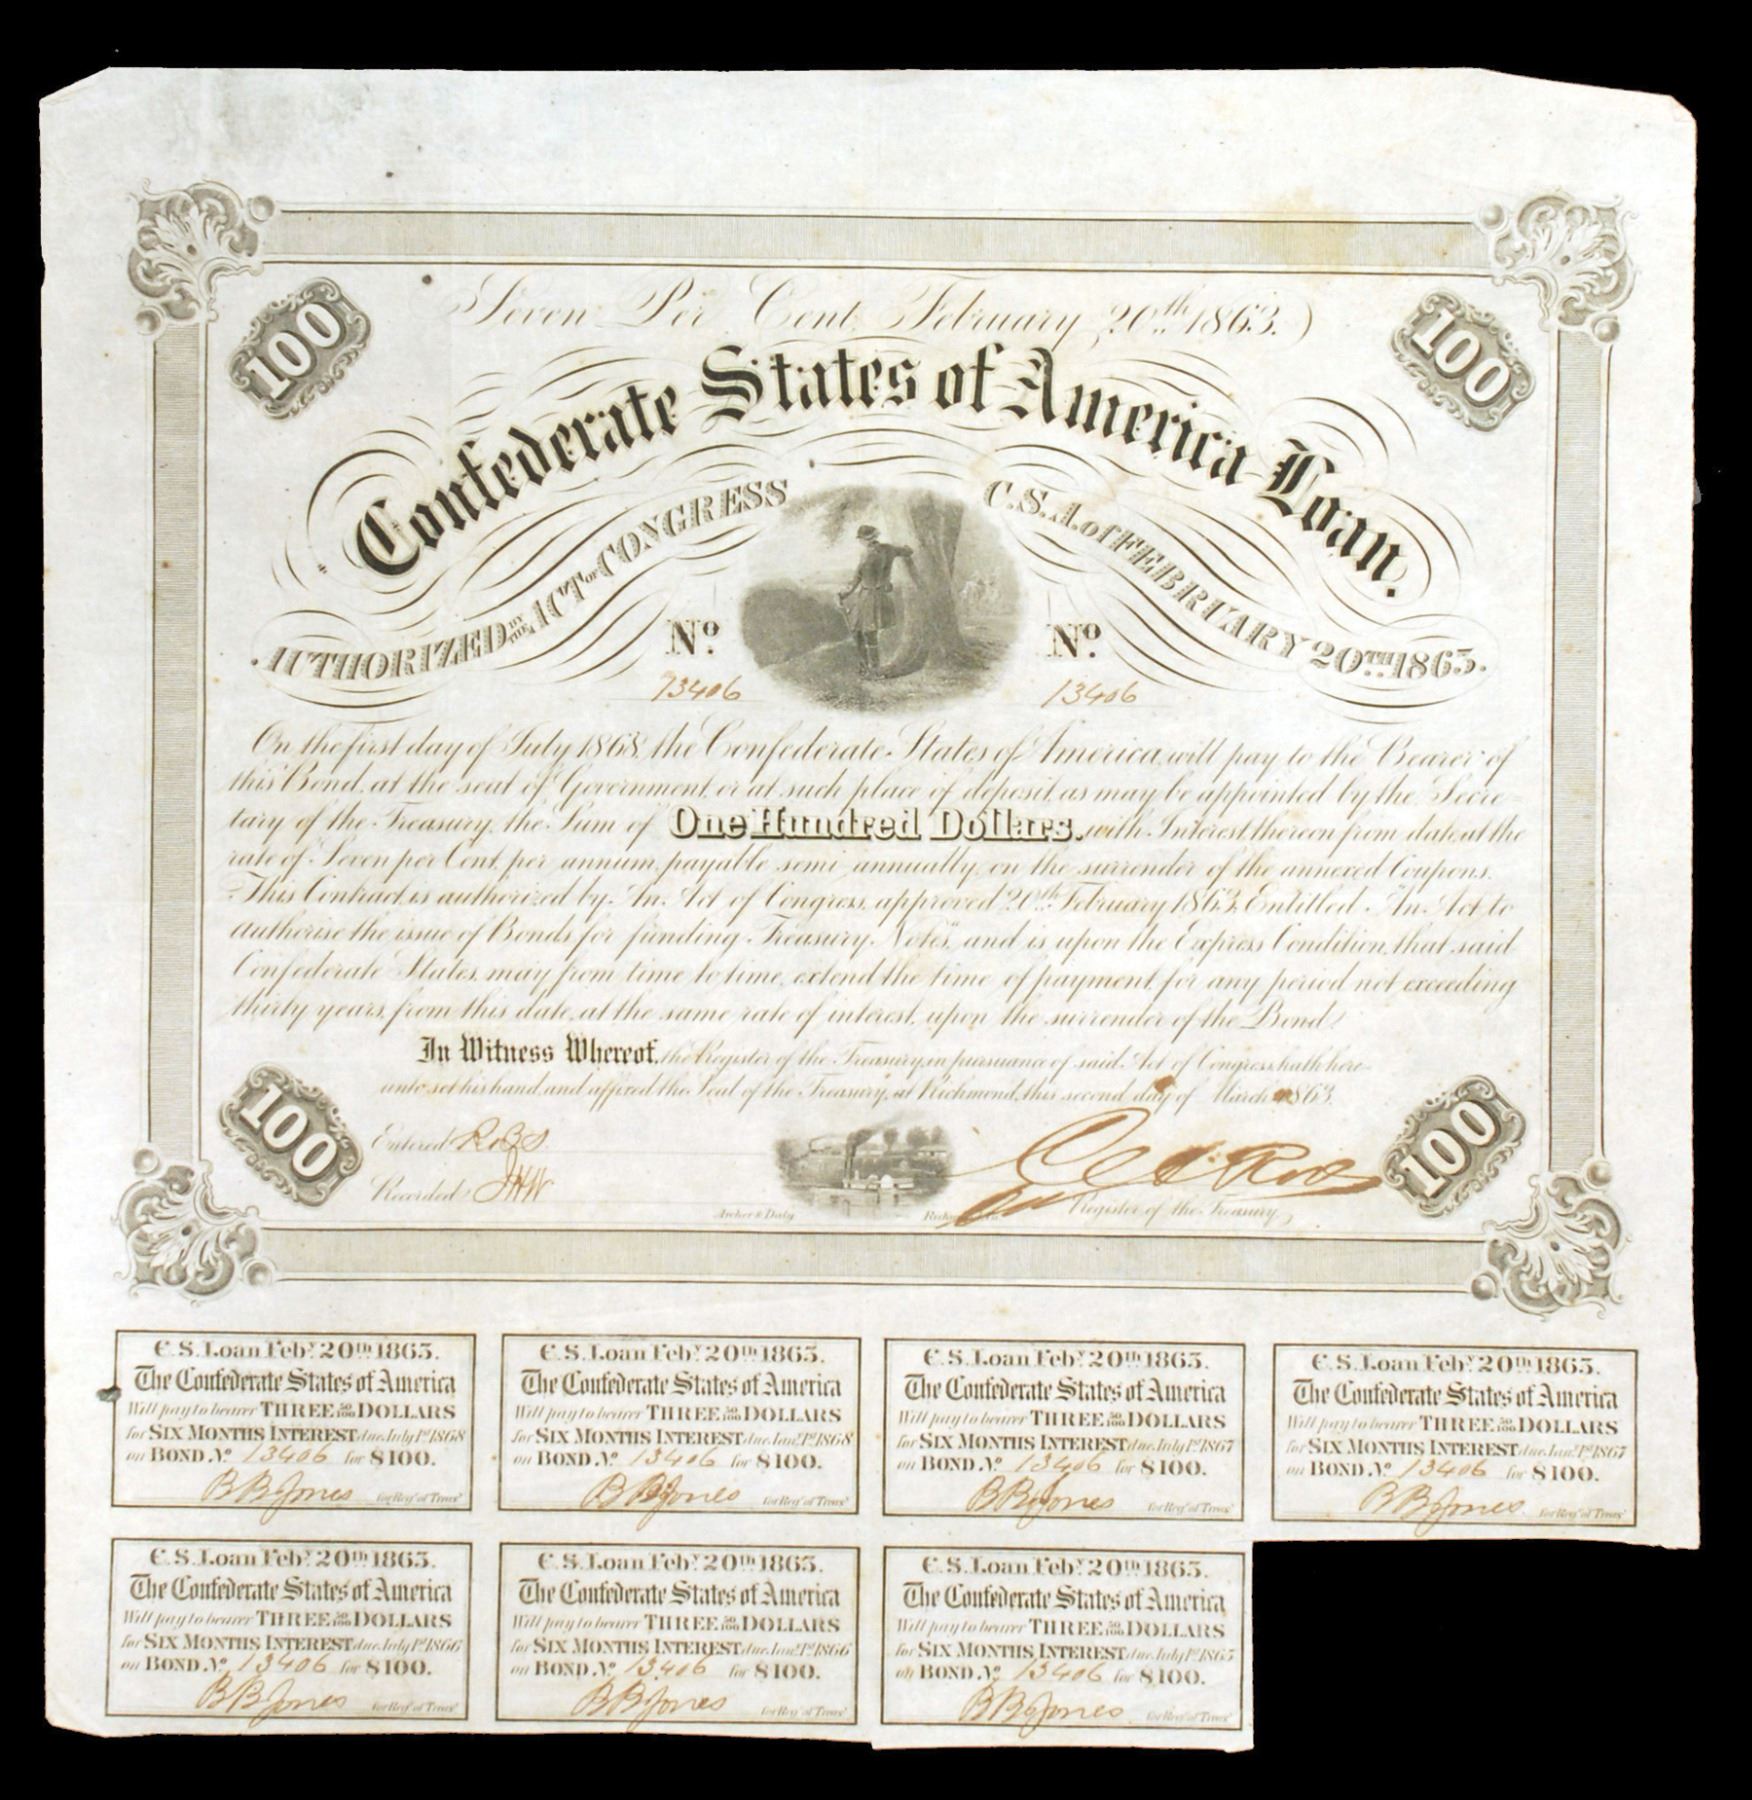 Seven Per Cent, February 20th 1863.
100
100
Confederate States of America Loan.
AUTHORIZED BY THE ACT OF CONGRESS C.S.A. of FEBRUARY 20TH 1863.
No. No.
13406 13406
On the first day of July 1868, the Confederate States of America, will pay to the Bearer of
this Bond, at the seat of Government, or at such place of deposit, as may be appointed by the Secre-
tary of the Treasury, the Sum of One Hundred Dollars. with Interest thereon from date, at the
rate of Seven per Cent, per annum, payable semi annually, on the surrender of the annexed Coupons.
This Contract, is authorized by An Act of Congress, approved 20th February 1863, Entitled "An Act to
authorise the issue of Bonds for funding Treasury Notes", and is upon the Express Condition, that said
Confederate States, may from time to time, extend the time of payment, for any period not exceeding
thirty years, from this date, at the same rate of interest, upon the surrender of the Bond.
In Witness Whereof, the Register of the Treasury, in pursuance of said Act of Congress, hath here-
unto set his hand, and affixed the Seal of the Treasury, at Richmond, this second day of March 1863.
100
100
Entered
Recorded JHW
Archer & Daly
Register of the Treasury
C.S. Loan Feby 20th 1863.
The Confederate States of America
Will pay to bearer THREE 50/100 DOLLARS
for SIX MONTHS INTEREST due July 1st 1868
on BOND No 13406 for $100.
B B Jones for Regr of Treasy
C.S. Loan Feby 20th 1863.
The Confederate States of America
Will pay to bearer THREE 50/100 DOLLARS
for SIX MONTHS INTEREST due Jany 1st 1868
on BOND No 13406 for $100.
B B Jones for Regr of Treasy
C.S. Loan Feby 20th 1863.
The Confederate States of America
Will pay to bearer THREE 50/100 DOLLARS
for SIX MONTHS INTEREST due July 1st 1867
on BOND No 13406 for $100.
B B Jones for Regr of Treasy
C.S. Loan Feby 20th 1863.
The Confederate States of America
Will pay to bearer THREE 50/100 DOLLARS
for SIX MONTHS INTEREST due Jany 1st 1867
on BOND No 13406 for $100.
B B Jones for Regr of Treasy
C.S. Loan Feby 20th 1863.
The Confederate States of America
Will pay to bearer THREE 50/100 DOLLARS
for SIX MONTHS INTEREST due July 1st 1866
on BOND No 13406 for $100.
B B Jones for Regr of Treasy
C.S. Loan Feby 20th 1863.
The Confederate States of America
Will pay to bearer THREE 50/100 DOLLARS
for SIX MONTHS INTEREST due Jany 1st 1866
on BOND No 13406 for $100.
B B Jones for Regr of Treasy
C.S. Loan Feby 20th 1863.
The Confederate States of America
Will pay to bearer THREE 50/100 DOLLARS
for SIX MONTHS INTEREST due July 1st 1865
on BOND No 13406 for $100.
B B Jones for Regr of Treasy